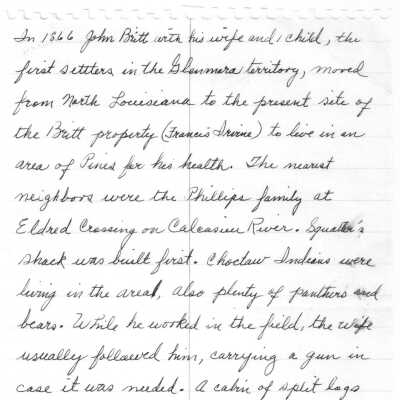 In 1866 John Britt with his wife and 1 child, the
first settlers in the Glenmora territory, moved
from North Louisiana to the present site of
the Britt property (Francis Irvine) to live in an
area of Pines for his health. The nearest
neighbors were the Phillips family at
Eldred Crossing on Calcasieu River. Squatter's
shack was built first. Choctaw Indians were
living in the area, also plenty of panthers and
bears. While he worked in the field, the wife
usually followed him, carrying a gun in
case it was needed. A cabin of split logs